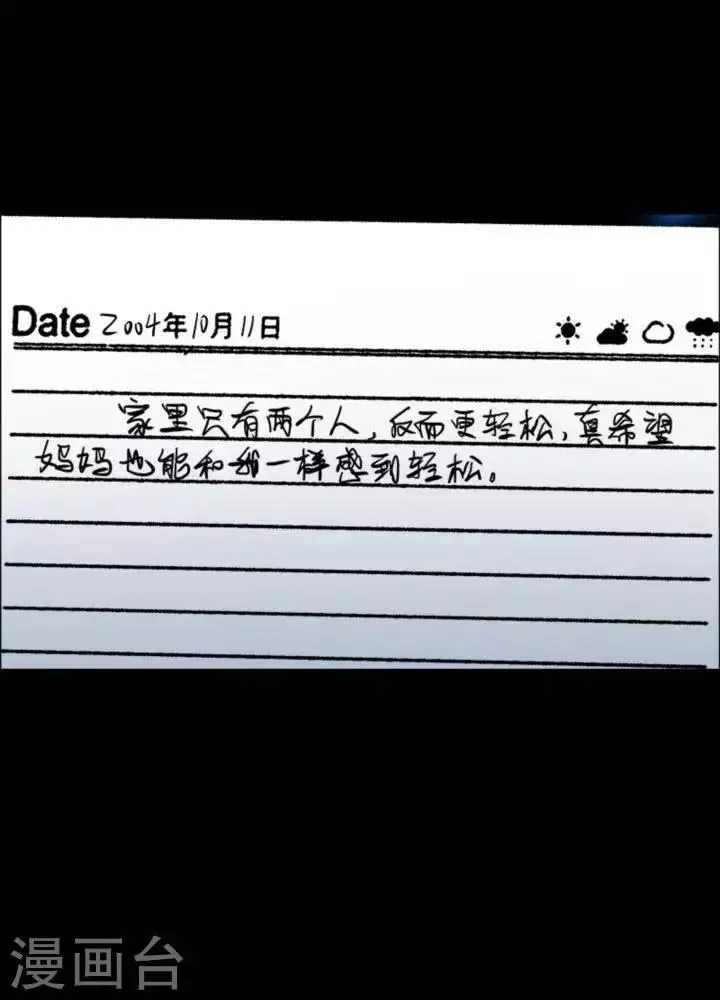 Date 2004年10月11日
家里只有两个人，反而更轻松，真希望
妈妈也能和我一样感到轻松。
漫画台